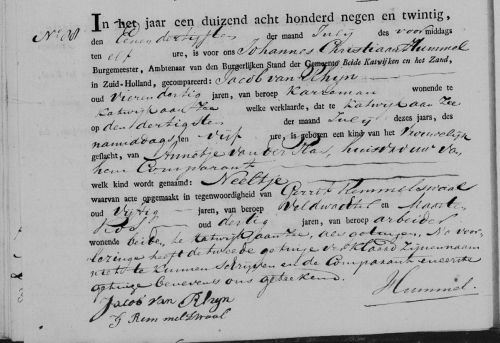 No. 98
In het jaar een duizend acht honderd negen en twintig,
den Eenendertigsten der maand July des voormiddags
ten elf ure, is voor ons Johannes Christiaan Hummel
Burgemeester, Ambtenaar van den Burgerlijken Stand der Gemeente Beide Katwijken en het Zand,
in Zuid-Holland, gecompareerd: Jacob van Rhyn
oud Vierendertig jaren, van beroep Karreman wonende te
Katwijk aan Zee welke verklaarde, dat te Katwijk aan Zee
op den dertigsten der maand July dezes jaars, des
namiddags ten vijf ure, is geboren een kind van het Vrouwelijk
geslacht, van Annetje van der Plas, huisvrouw van
hem Comparant
welk kind wordt genaamd: Neeltje
waarvan acte opgemaakt in tegenwoordigheid van Gerrit Remmelswaal
oud vijftig jaren, van beroep Veldwachter en Maarten
oud dertig jaren, van beroep arbeider
wonende beiden te Katwijk aan Zee, als getuigen. Na voor-
lezinge heeft de tweede getuige verklaard zijnen naam
niet te kunnen schrijven en de Comparant en eerste
getuige benevens ons getekend.
Jacob van Rhyn
G Remmelswaal
Hummel.